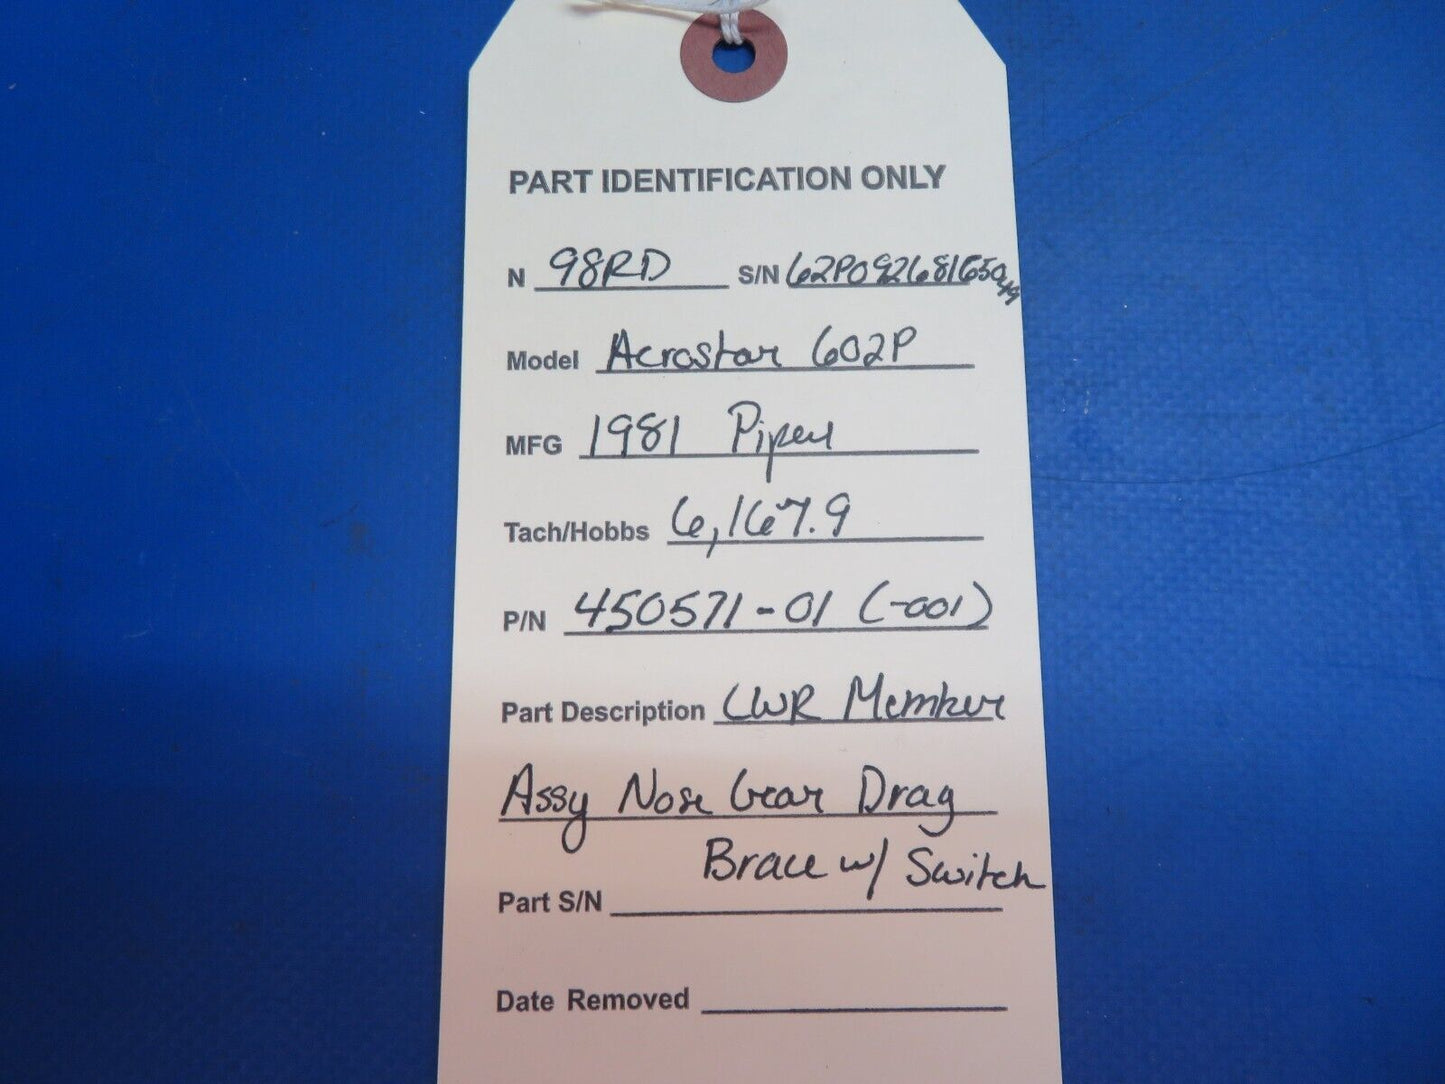 PART IDENTIFICATION ONLY
N 98RD S/N 62P09268165049
Model Aerostar 602P
MFG 1981 Piper
Tach/Hobbs 6,167.9
P/N 450571-01 (-001)
Part Description LWR Member
Assy Nose Gear Drag
Brace w/ Switch
Part S/N
Date Removed